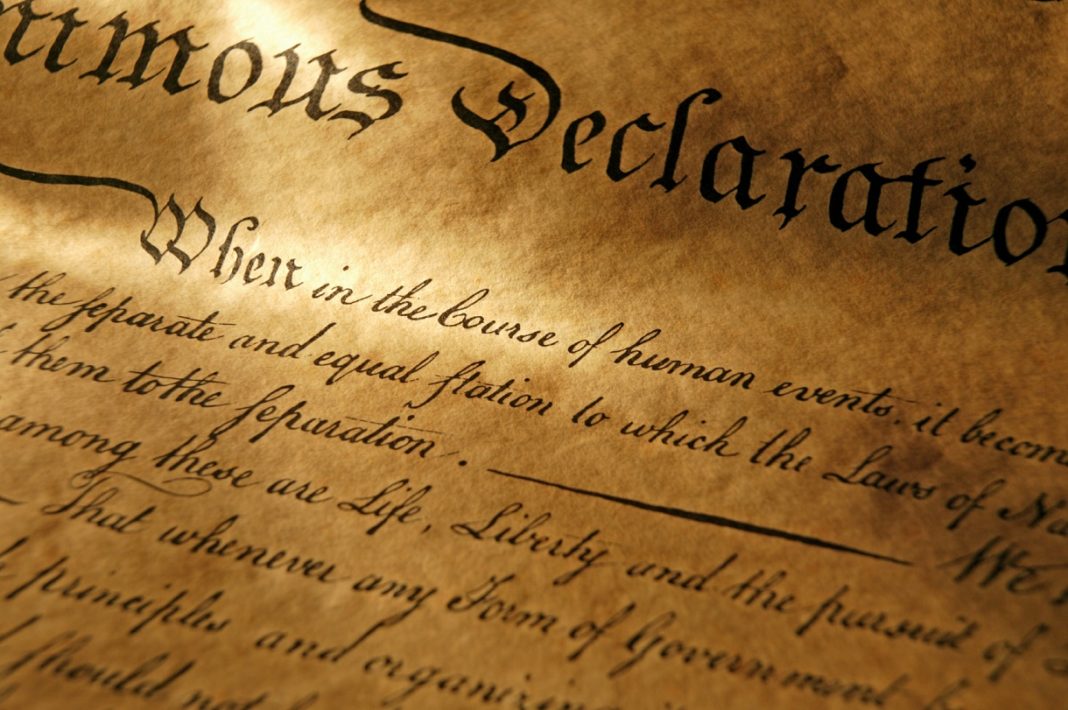 nimous Declaration
When in the Course of human events, it become
the ſeparate and equal ſtation to which the Laws of Na
them to the ſeparation. — We
among these are Life, Liberty and the pursuit of
— That whenever any Form of Government
principles and organizin
should not